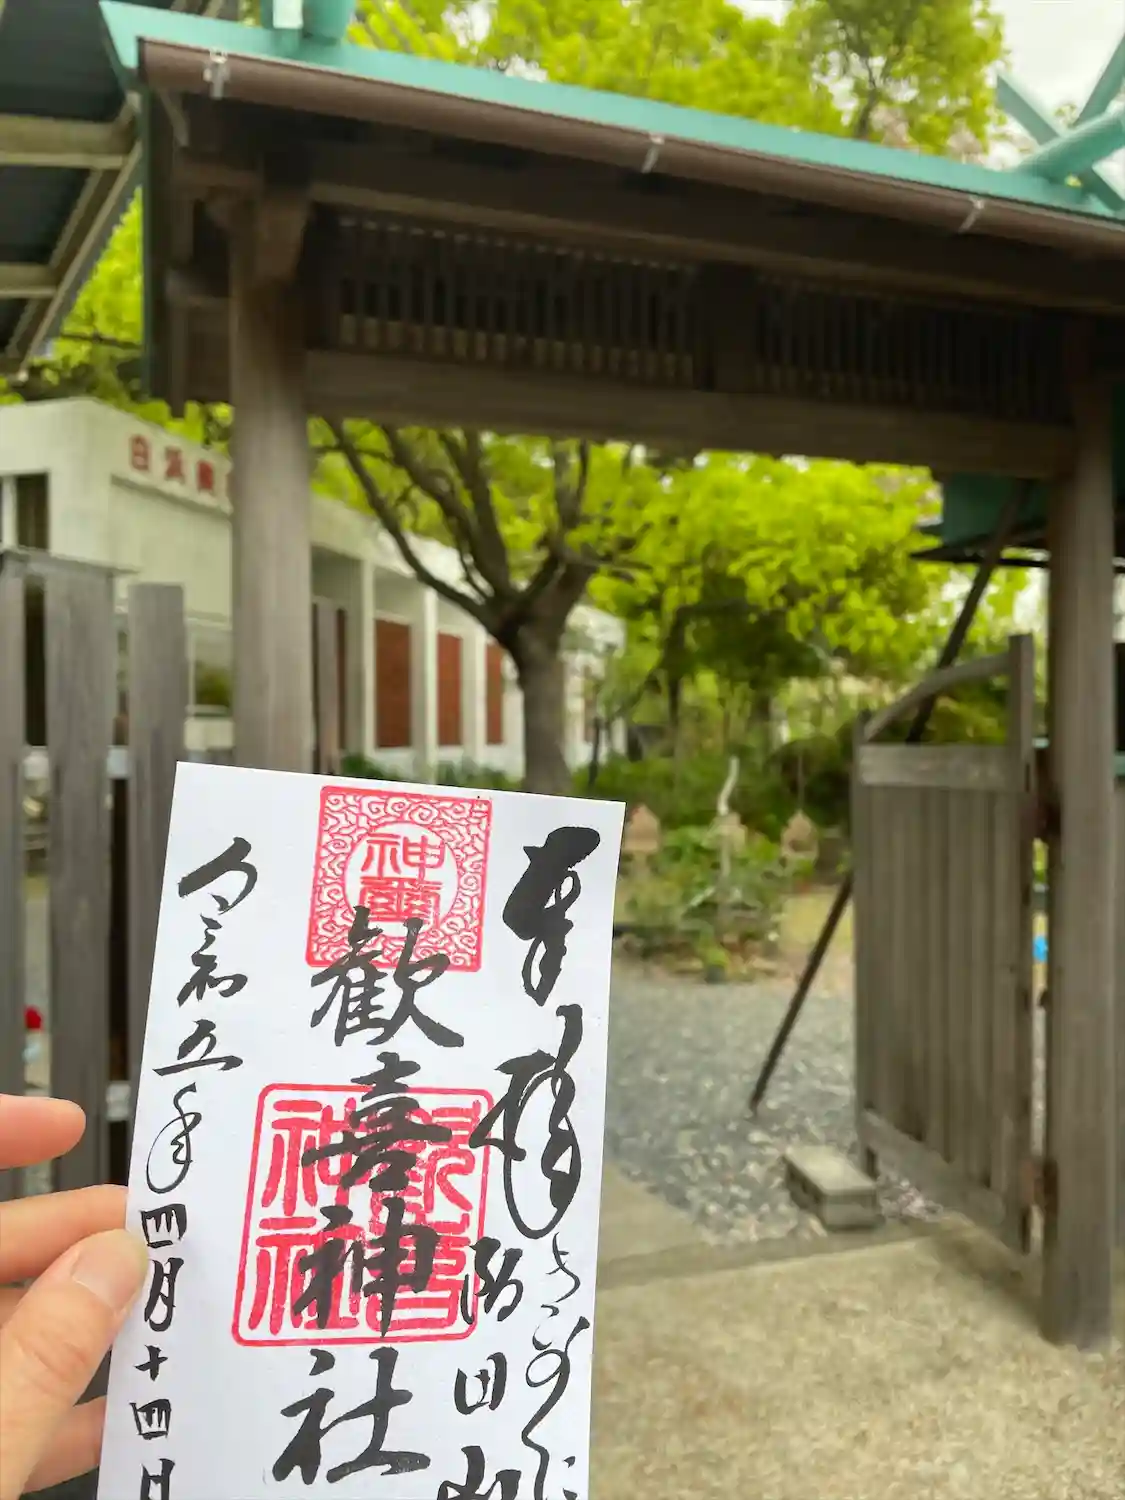 奉拝
さぬきくに
陽田山
神璽
歓喜神社
歓喜神社
令和五年四月十四日
白浜